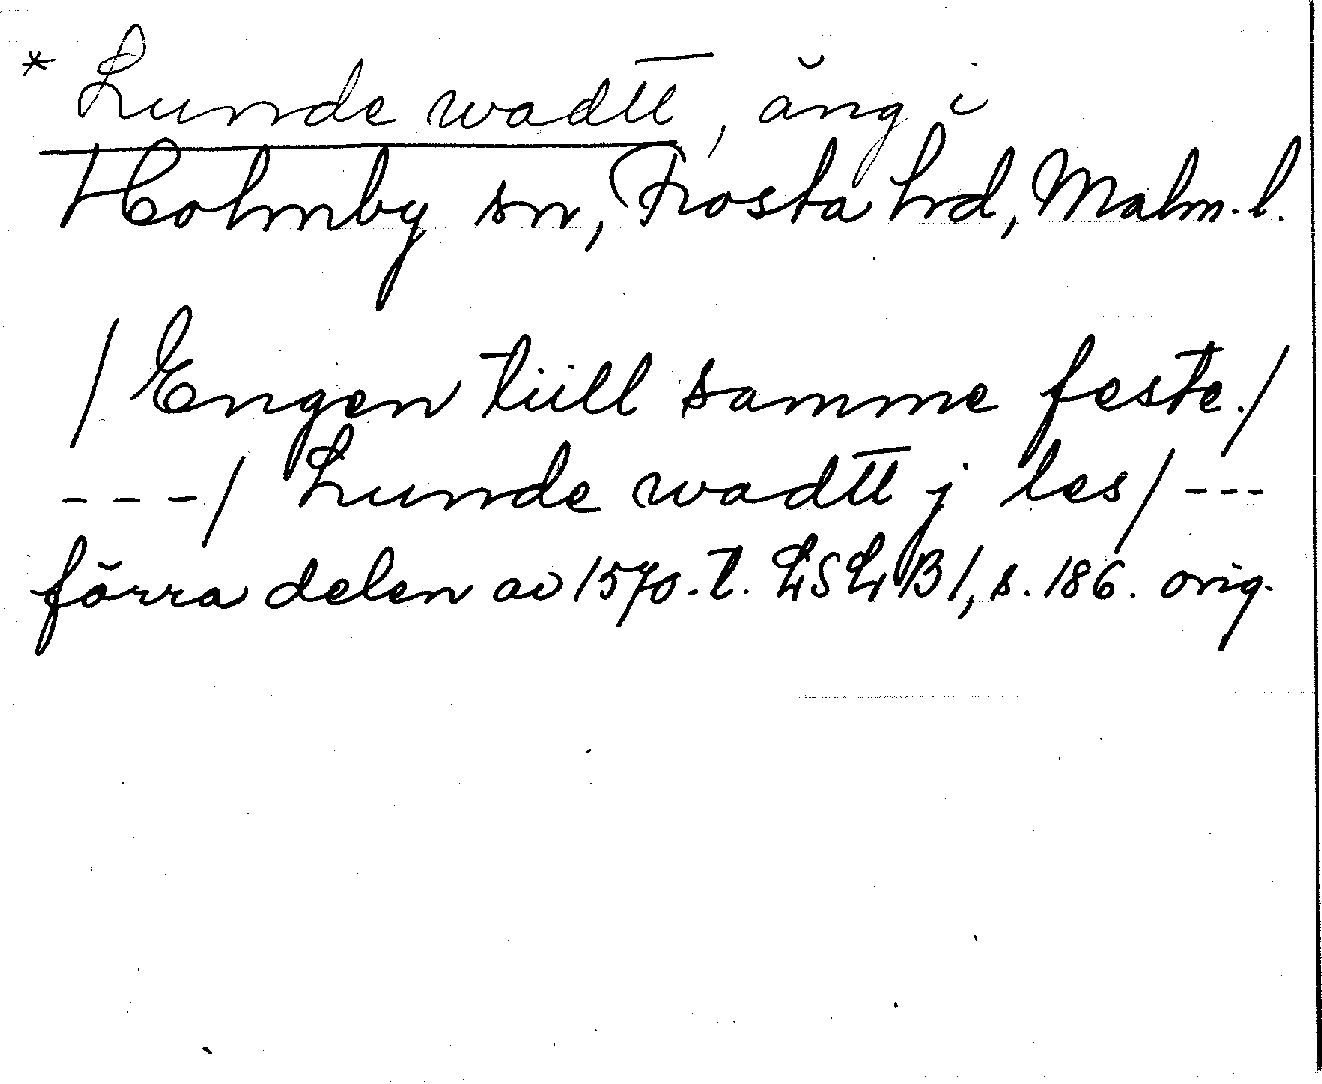 * Lunde wadtt, äng i
Holmby sn, Frosta hrd, Malm. l.
/ Engen tiill samme feste. /
--- / Lunde wadtt j les / ---
förra delen av 1570-t. LSLB 1, s. 186. orig.